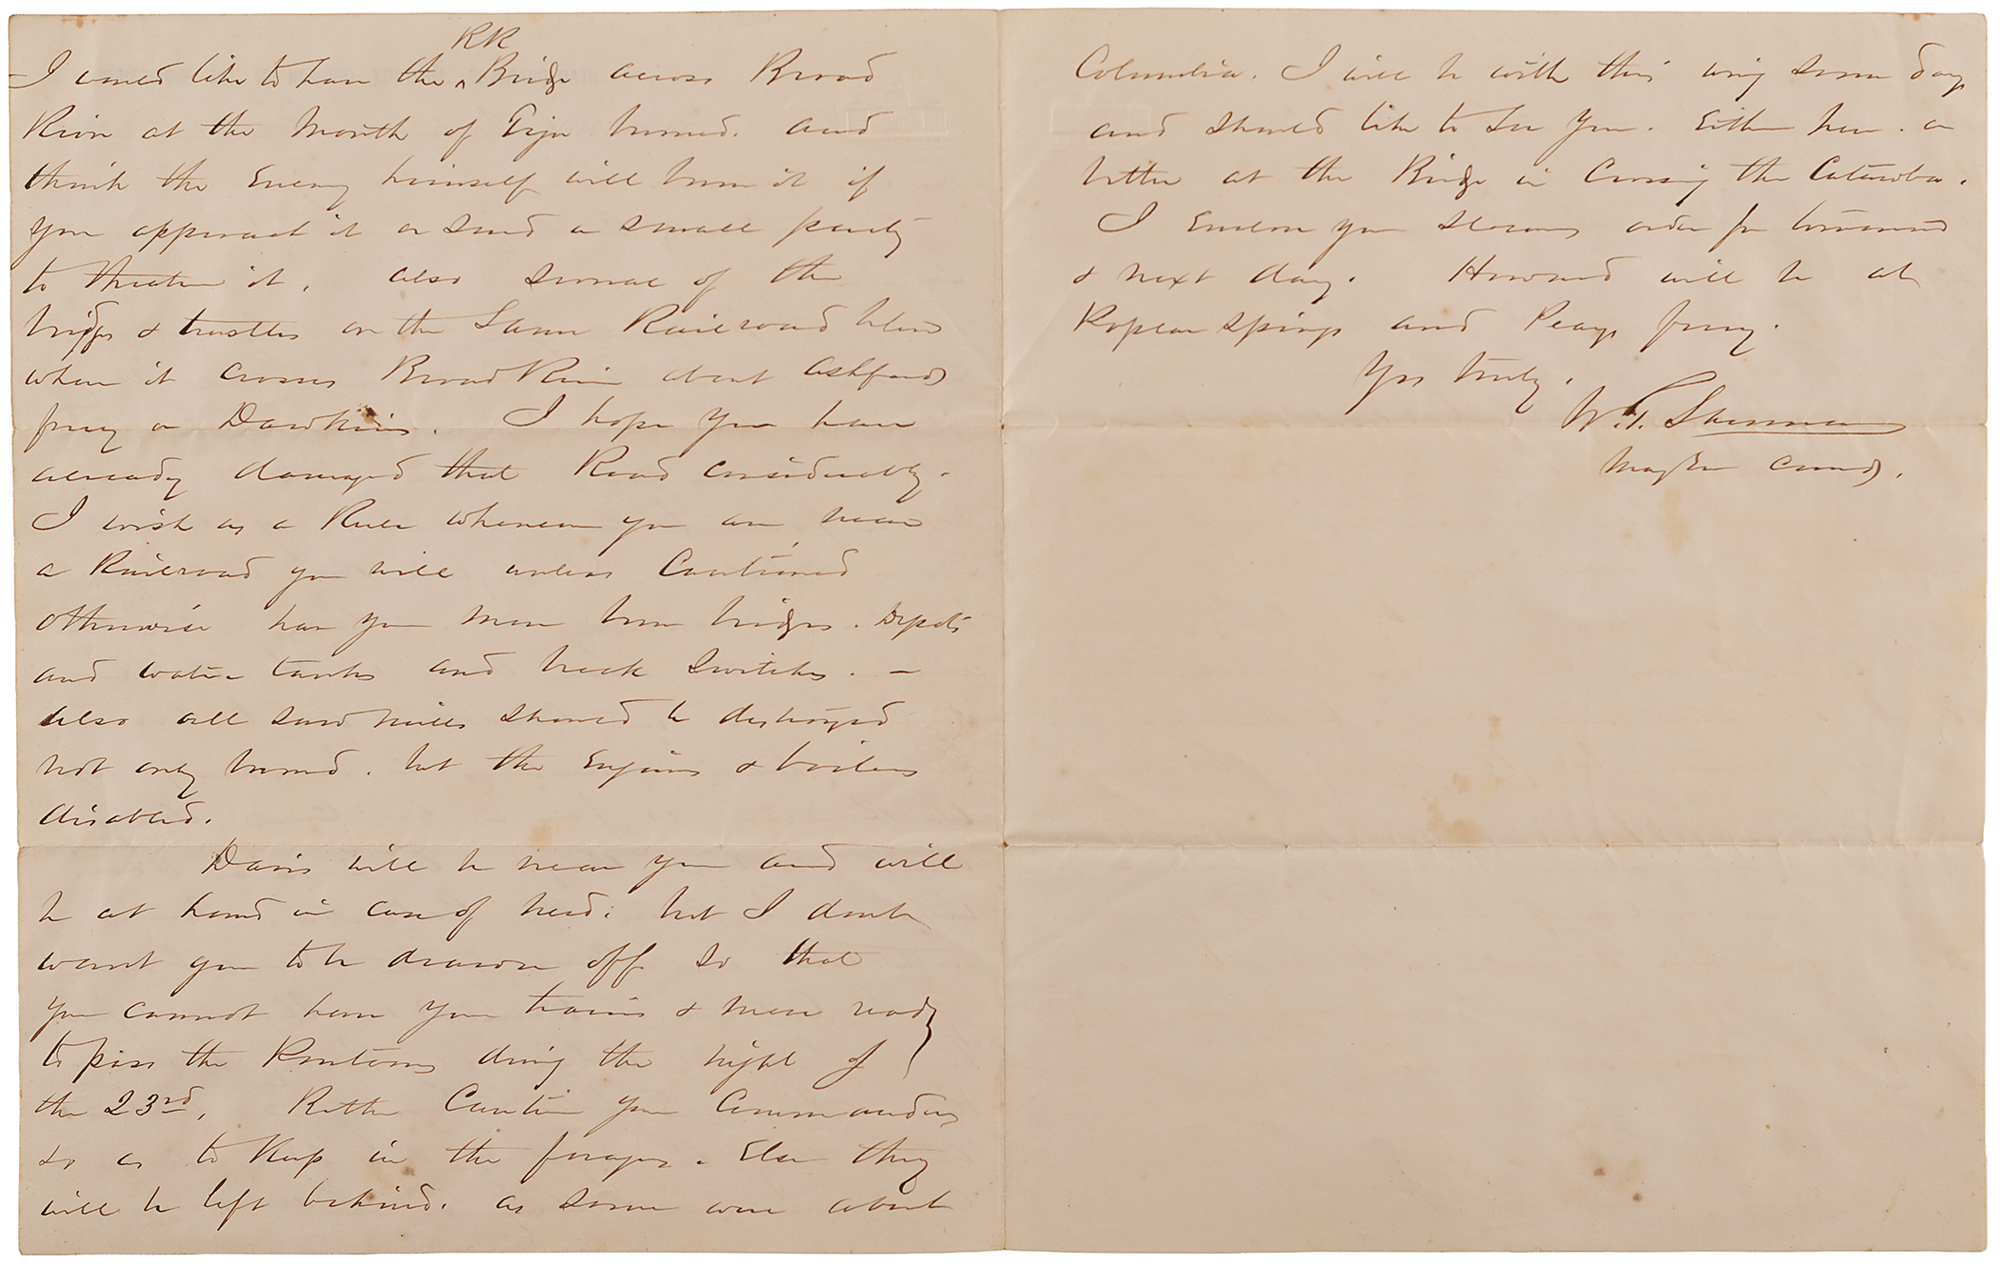 RR
I would like to have the ^ Bridge across Broad
River at the Mouth of Tiger burned. and
think the Enemy himself will burn it if
you approach it or send a small party
to threaten it, also some of the
bridges & trestles on the same Railroad below
where it crosses Broad River about Ashfords
ferry or Dawkins. I hope you have
already damaged that Road considerably.
I wish as a Rule whenever you are near
a Railroad you will unless Cautioned
otherwise have your men burn bridges. Depots
and water tanks and break Switches. –
also all saw mills should be destroyed
not only burned. but the Engines & boilers
disabled.
Davis will be near you and will
be at hand in case of need. but I dont
want you to be drawn off so that
you cannot have your trains & men ready
to pass the Pontoons during the night of
the 23rd. Rather Caution your Commanders
so as to Keep in the foragers. Else they
will be left behind. as some were about
Columbia. I will be with this wing some days
and should like to see you. Either here. or
better at the Bridge in Crossing the Catawba.
I Enclose you Slocums order for tomorrow
& next day. Howard will be at
Springs and Peays ferry.
Yrs truly,
W.T. Sherman
Maj Gen Comdg.